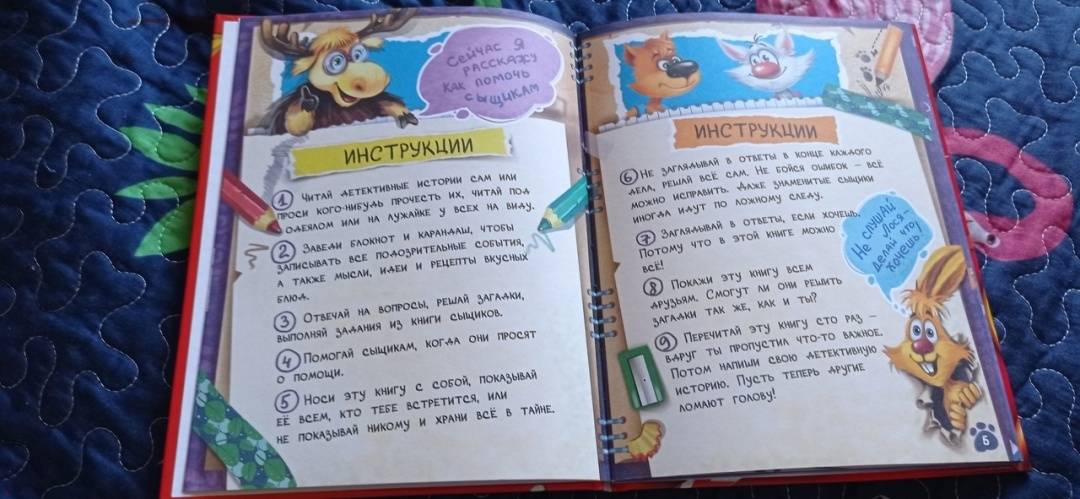 Сейчас я
расскажу
как помочь
сыщикам
ИНСТРУКЦИИ
1 Читай детективные истории сам или
проси кого-нибудь прочесть их, читай под
одеялом или на лужайке у всех на виду.
2 Заведи блокнот и карандаш, чтобы
записывать все подозрительные события,
а также мысли, идеи и рецепты вкусных
блюд.
3 Отвечай на вопросы, решай загадки,
выполняй задания из книги сыщиков.
4 Помогай сыщикам, когда они просят
о помощи.
5 Носи эту книгу с собой, показывай
её всем, кто тебе встретится, или
не показывай никому и храни всё в тайне.
ИНСТРУКЦИИ
6 Не заглядывай в ответы в конце каждого
дела, решай всё сам. Не бойся ошибок – всё
можно исправить. Даже знаменитые сыщики
иногда идут по ложному следу.
7 Заглядывай в ответы, если хочешь.
Потому что в этой книге можно
всё!
Не слушай
Лося –
делай что
хочешь
8 Покажи эту книгу всем
друзьям. Смогут ли они решить
загадки так же, как и ты?
9 Перечитай эту книгу сто раз –
вдруг ты пропустил что-то важное.
Потом напиши свою детективную
историю. Пусть теперь другие
ломают голову!
5